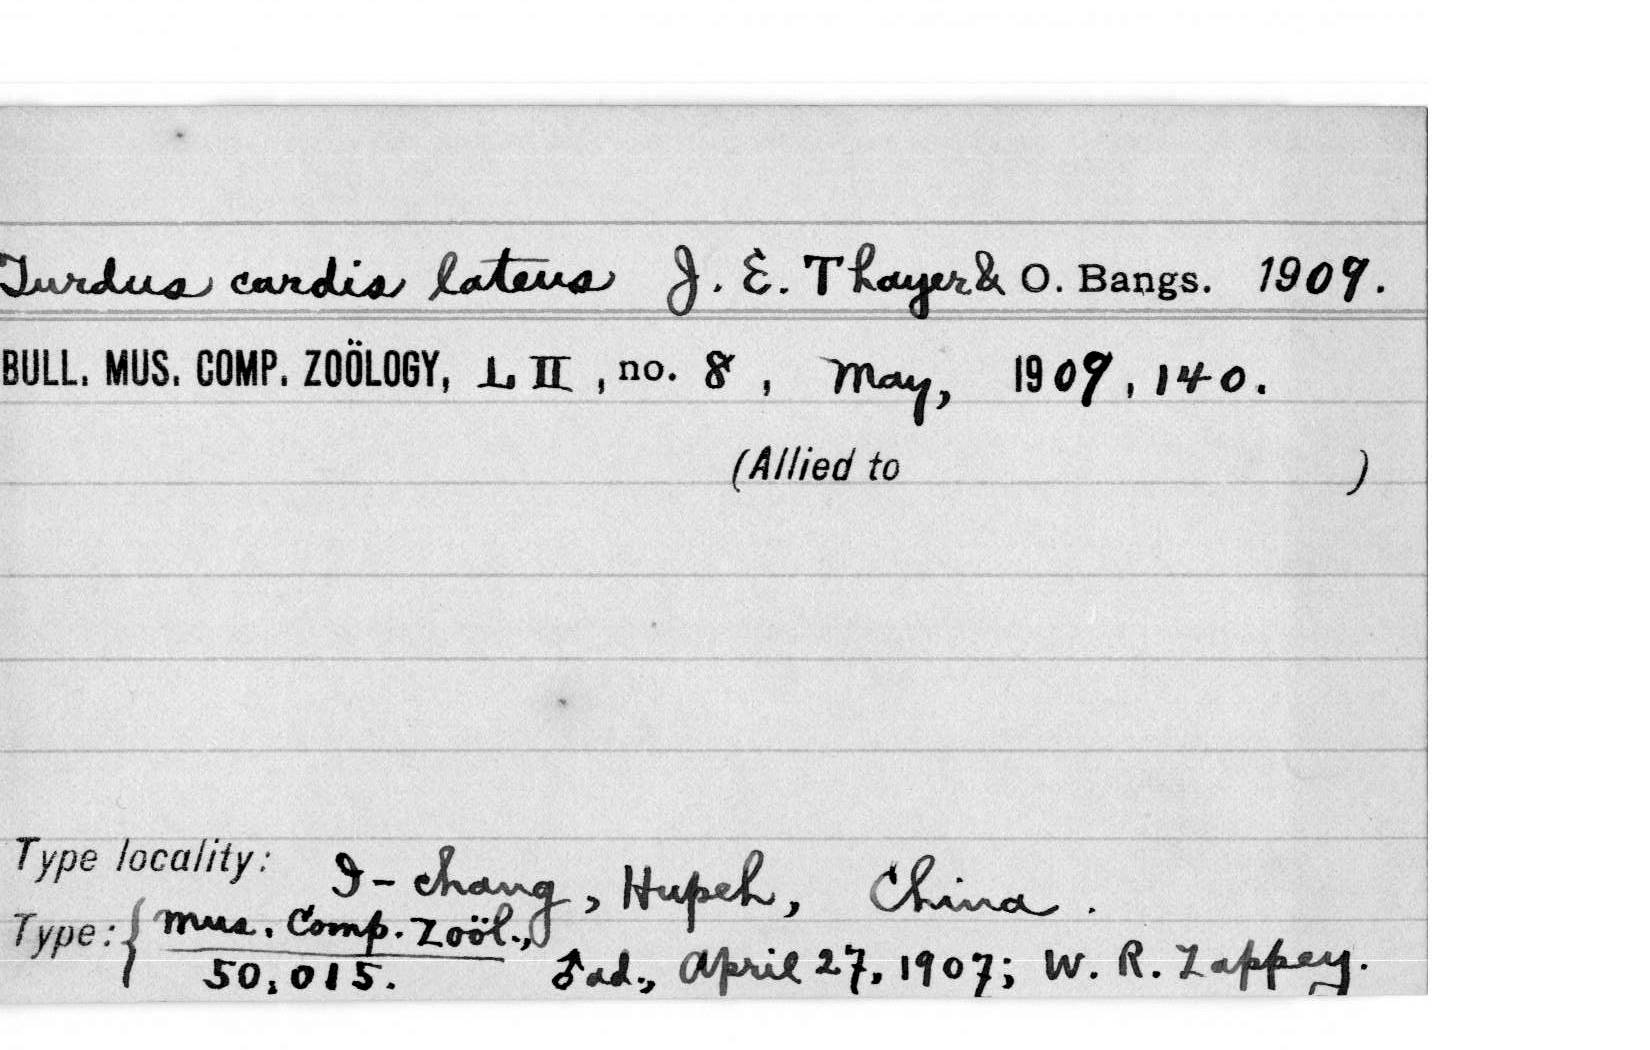 Turdus cardis lateus J. E. Thayer & O. Bangs. 1909.
BULL. MUS. COMP. ZOÖLOGY, LII, no. 8, May, 1909, 140.
(Allied to )
Type locality: I-chang, Hupeh, China.
Type: { Mus. Comp. Zoöl.,
50,015. ♂ ad., April 27, 1907; W. R. Zappey.